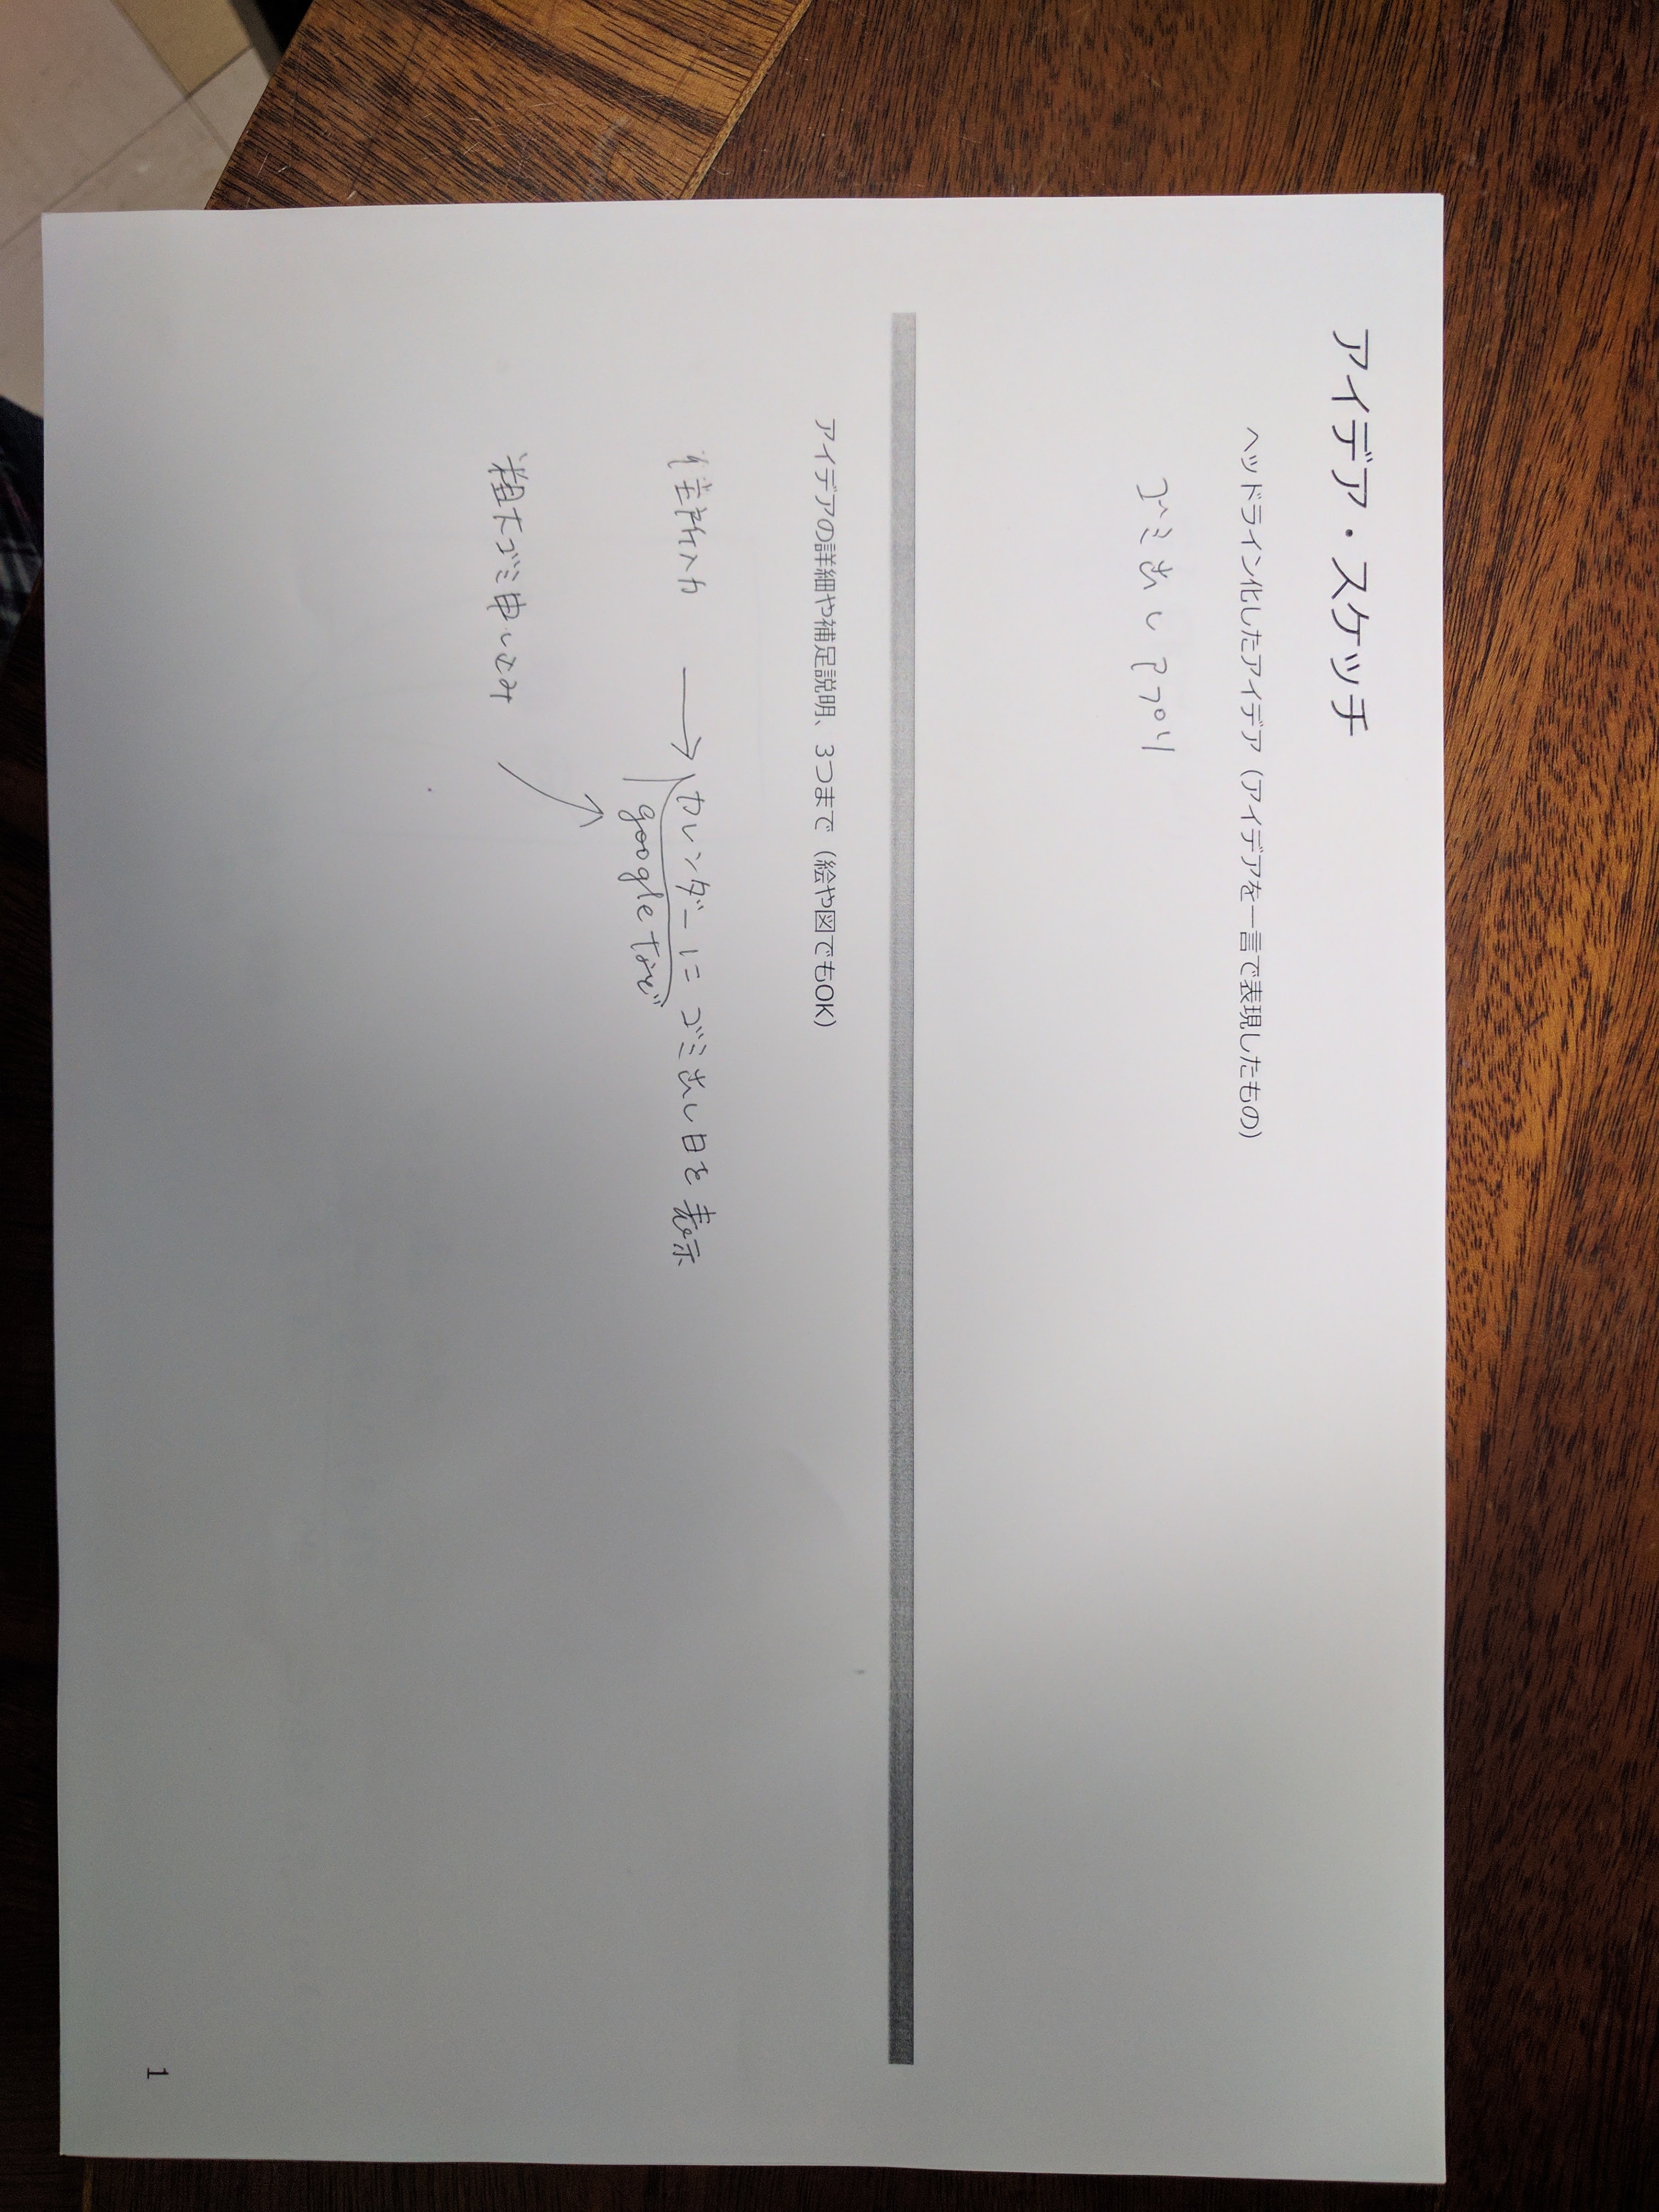 アイデア・スケッチ
ヘッドライン化したアイデア（アイデアを一言で表現したもの）
ゴミ出しアプリ
アイデアの詳細や補足説明、3つまで（絵や図でもOK）
住所入力 → カレンダーに ゴミ出し日を表示
googleなど
粗大ゴミ申し込み
1